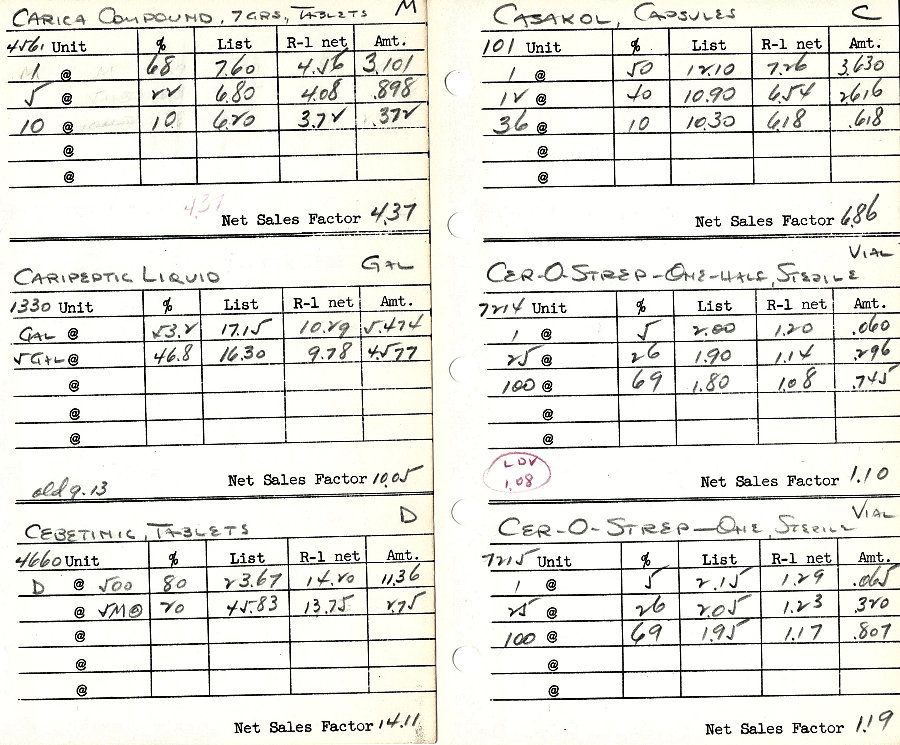 CARICA COMPOUND, 7 GRS, TABLETS M
4561 Unit % List R-1 net Amt.
1 @ 68 7.60 4.56 3.101
5 @ 22 6.80 4.08 .898
10 @ 10 6.20 3.72 .372
@
@
4.37
Net Sales Factor 4.37
CARIPEPTIC LIQUID GAL
1330 Unit % List R-1 net Amt.
GAL @ 53.2 17.15 10.29 5.474
5 GAL @ 46.8 16.30 9.78 4.577
@
@
@
old 9.13
Net Sales Factor 10.05
CEBETINIC, TABLETS D
4660 Unit % List R-1 net Amt.
D @ 500 80 23.67 14.20 11.36
@ 5M 20 45.83 13.75 2.75
@
@
@
Net Sales Factor 14.11
CASAKOL, CAPSULES C
101 Unit % List R-1 net Amt.
1 @ 50 12.10 7.26 3.630
12 @ 40 10.90 6.54 2.616
36 @ 10 10.30 6.18 .618
@
@
Net Sales Factor 6.86
CER-O-STREP-ONE-HALF, STERILE VIAL
7214 Unit % List R-1 net Amt.
1 @ 5 2.00 1.20 .060
25 @ 26 1.90 1.14 .296
100 @ 69 1.80 1.08 .745
@
@
LDV
1.08
Net Sales Factor 1.10
CER-O-STREP-ONE, STERILE VIAL
7215 Unit % List R-1 net Amt.
1 @ 5 2.15 1.29 .065
25 @ 26 2.05 1.23 .320
100 @ 69 1.95 1.17 .807
@
@
Net Sales Factor 1.19